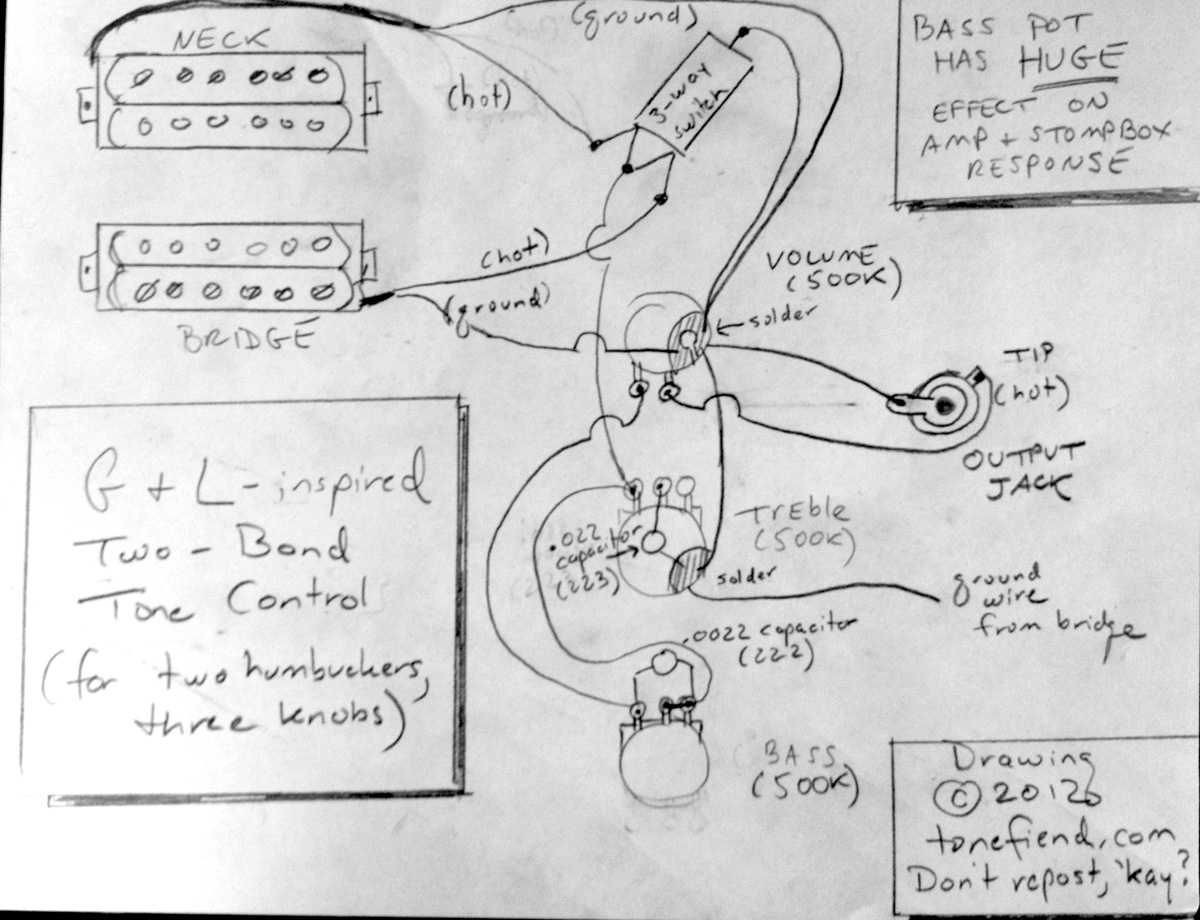 (ground)
NECK
(hot)
3-way
switch
BASS POT
HAS HUGE
EFFECT ON
AMP + STOMPBOX
RESPONSE
(hot)
(ground)
BRIDGE
VOLUME
(500K)
solder
TIP
(hot)
OUTPUT
JACK
G + L-inspired
Two-Band
Tone Control
(for two humbuckers,
three knobs)
.022
capacitor
(223)
TREble
(500K)
solder
ground
wire
from bridge
.0022 capacitor
(222)
BASS
(500K)
Drawing
© 2012
tonefiend.com
Don't repost, 'kay?